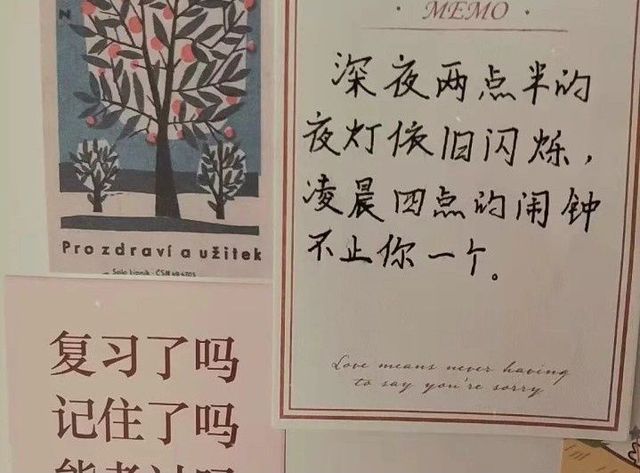 N
Pro zdraví a užitek
Solo Lipník · ČSN 49 6705
复习了吗
记住了吗
能考过吗
· MEMO ·
深夜两点半的
夜灯依旧闪烁，
凌晨四点的闹钟
不止你一个。
Love means never having
to say you're sorry